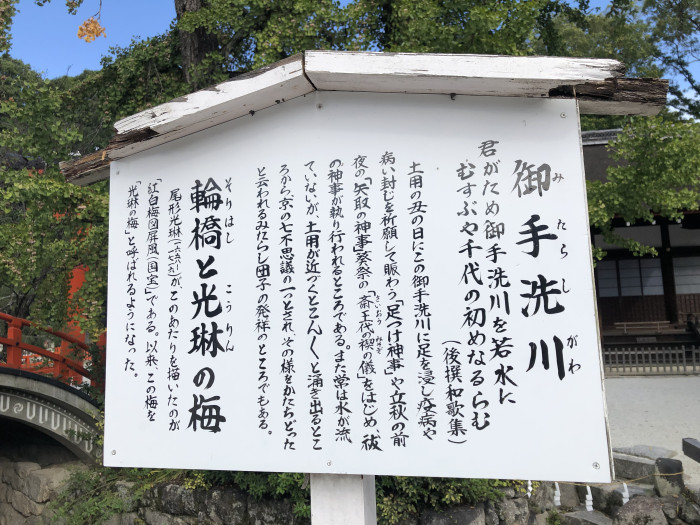 御手洗川
みたらしがわ
君がため御手洗川を若水に
むすぶや千代の初めなるらむ
(後撰和歌集)
土用の丑の日にこの御手洗川に足を浸し疫病や
病い封じを祈願して賑わう「足つけ神事」や立秋の前
夜の「矢取の神事」葵祭の「斎王代の禊の儀」をはじめ、祓
さいおう みそぎ
の神事が執り行われるところである。また常は水が流
れていないが、土用が近づくとこんこんと湧き出るとこ
ろから、京の七不思議の一つとされ、その様をかたちどった
と云われるみたらし団子の発祥のところでもある。
輪橋と光琳の梅
そりはし こうりん
尾形光琳が、このあたりを描いたのが
「紅白梅図屏風(国宝)」である。以来、この梅を
「光琳の梅」と呼ばれるようになった。